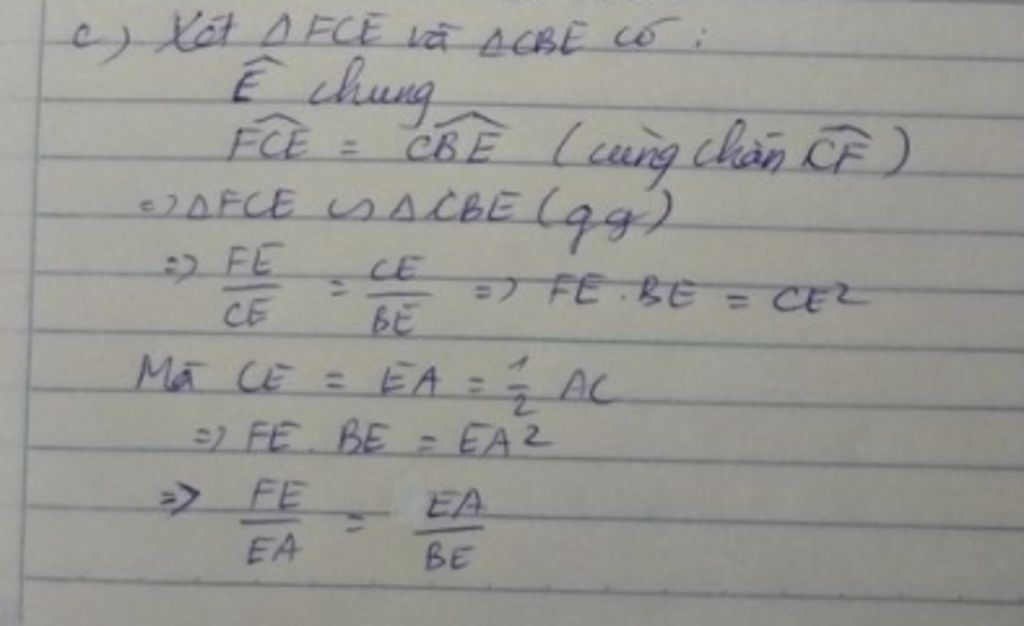 c) Xét ΔFCE và ΔCBE có :
Ê chung
FCE = CBE (cùng chắn CF)
=> ΔFCE ∽ ΔCBE (gg)
=> FE/CE = CE/BE => FE . BE = CE²
Mà CE = EA = 1/2 AC
=> FE . BE = EA²
=> FE/EA = EA/BE